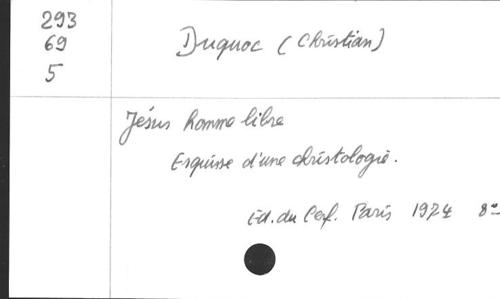 293
69
5
Duquoc (Christian)
Jésus homme libre
Esquisse d'une christologie.
Ed. du Cerf. Paris 1974 8°